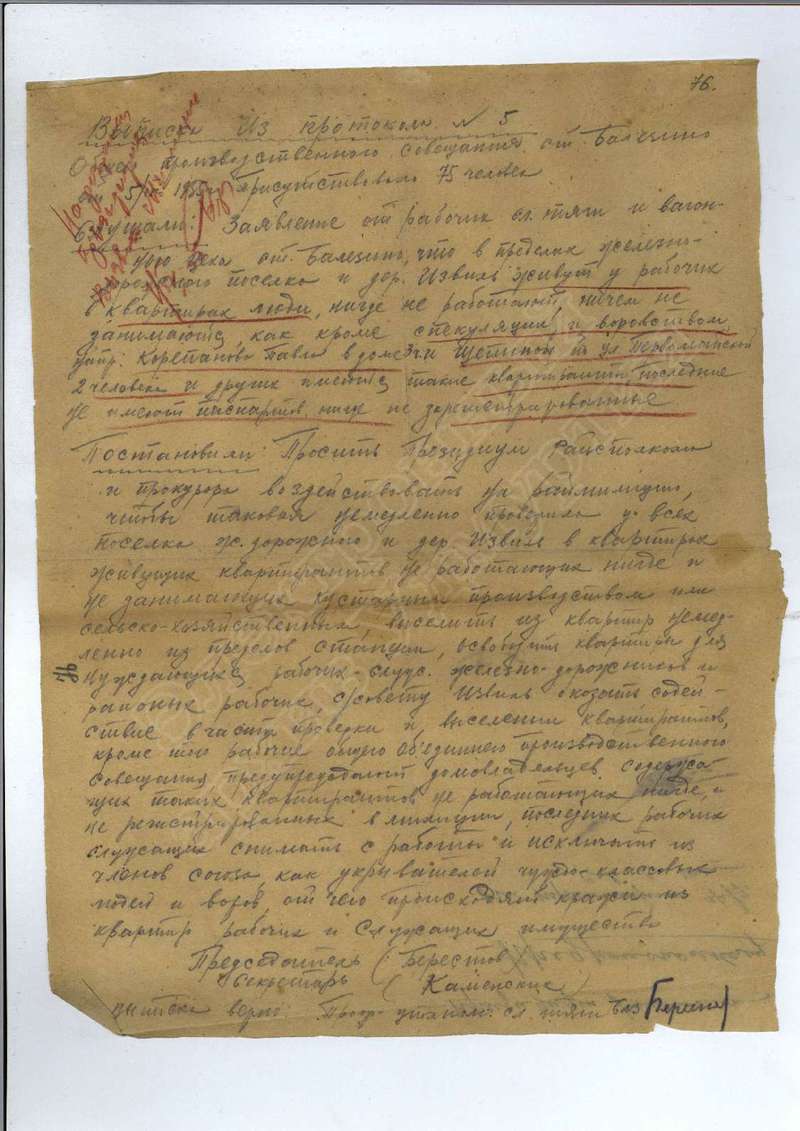 76.
Выписка Из протокола № 5
Общего производственного совещания ст. Балезино
Присутствовало 75 человек
Слушали: Заявление от рабочих сл. тяги и вагон-
ного цеха ст. Балезино, что в пределах железно-
дорожного поселка и дер. Извиль живут у рабочих
в квартирах люди, нигде не работающ ничем не
занимающиеся как кроме спекуляции и воровством
напр: Корепаново Павла в доме Щепиной по ул Первомайской
2 человека и других имеются такие квартиранты, последние
не имеют паспортов, нигде не зарегистрированные
Постановили: Просить Президиум Райисполкома
и прокурора воздействовать на раймилицию,
чтобы таковая немедленно проверила у всех
поселка ж. дорожного и дер. Извиль в квартирах
живущих квартирантов не работающих нигде и
не занимающих кустарным производством или
сельско-хозяйственным, выселить из квартир немед-
ленно из пределов станции, освободить квартиры для
нуждающихся рабочих-служ. железно-дорожников и
районных рабочих, с/совету Извиль оказать содей-
ствие в части проверки и выселении квартирантов,
кроме того рабочие общего объединнего производственного
совещания предупреждают домовладельцев содержа-
щих таких квартирантов не работающих нигде, и
не регистрированных в милиции, последних рабочих
служащих снимать с работы и исключать из
членов союза как укрывателей чуждо-классовых
людей и воров, от чего происходят кражи из
квартир рабочих и служащих имущества
Председатель (Берестов
Секретарь (Каменских)
выписка верно: сл. тяги Блз